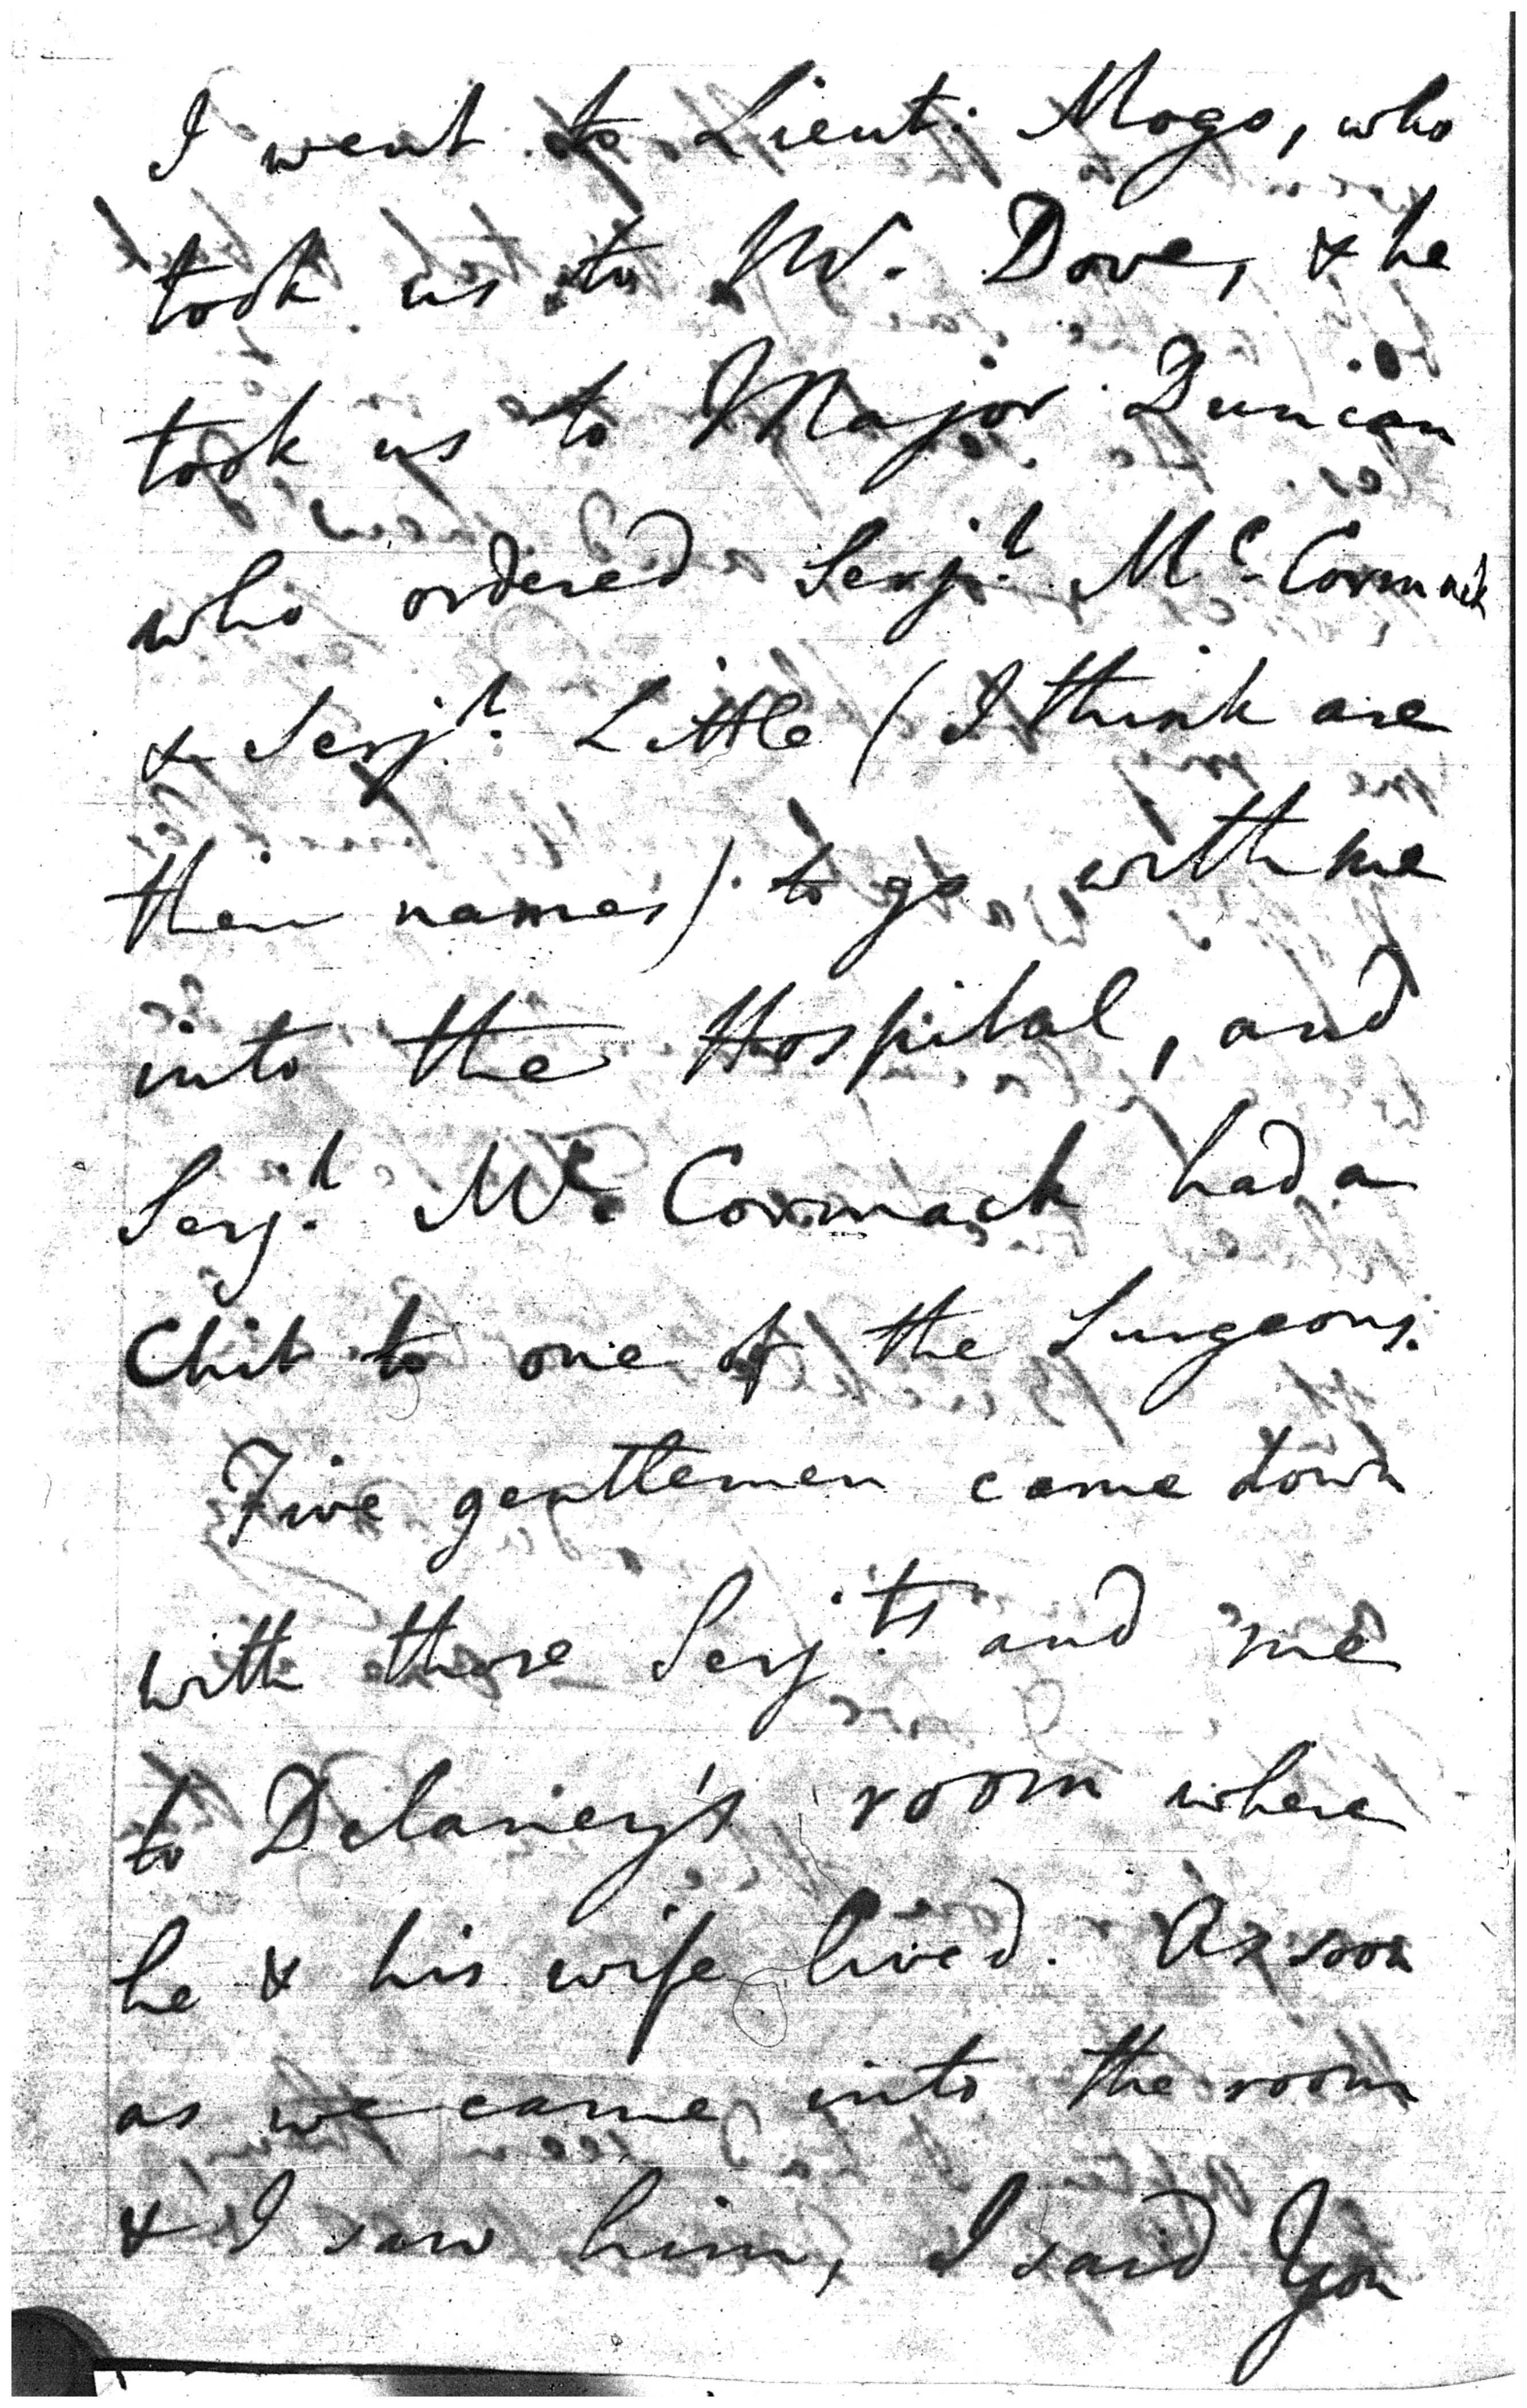 I went to Lieut. Mogo, who
took us to Mr. Dove, & he
took us to Major Duncan
who ordered Serjt. Mc. Cormack
& Serjt. Little (I think are
their names) to go with me
into the Hospital, and
Serjt. Mc. Cormack had a
Chit to one of the Surgeons.
Five gentlemen came down
with those Serjts. and me
to Delaney's room where
he & his wife lived. As soon
as we came into the room
& I saw him, I said You